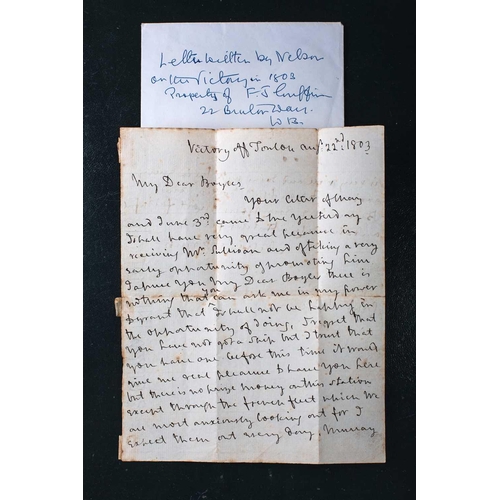 Letter written by Nelson
on the Victory in 1803
Property of F J Griffin
22 Way.
W
Victory off Toulon augt 22nd: 1803
My Dear Boyles
Your letter of May
and June 3rd. came to me yesterday
I shall have very great pleasure in
receiving Mr. Sullivan and of taking a very
early opportunity of promoting him
I assure you My Dear Boyles there is
nothing that you can ask me in my power
to grant that I shall not be happy in
the opportunity of doing, I regret that
you have not got a Ship but I trust that
you have one before this time it would
give me real pleasure to have you here
but there is no prize money on this station
except through the french fleet which We
are most anxiously looking out for I
Expect them out every day. Murray